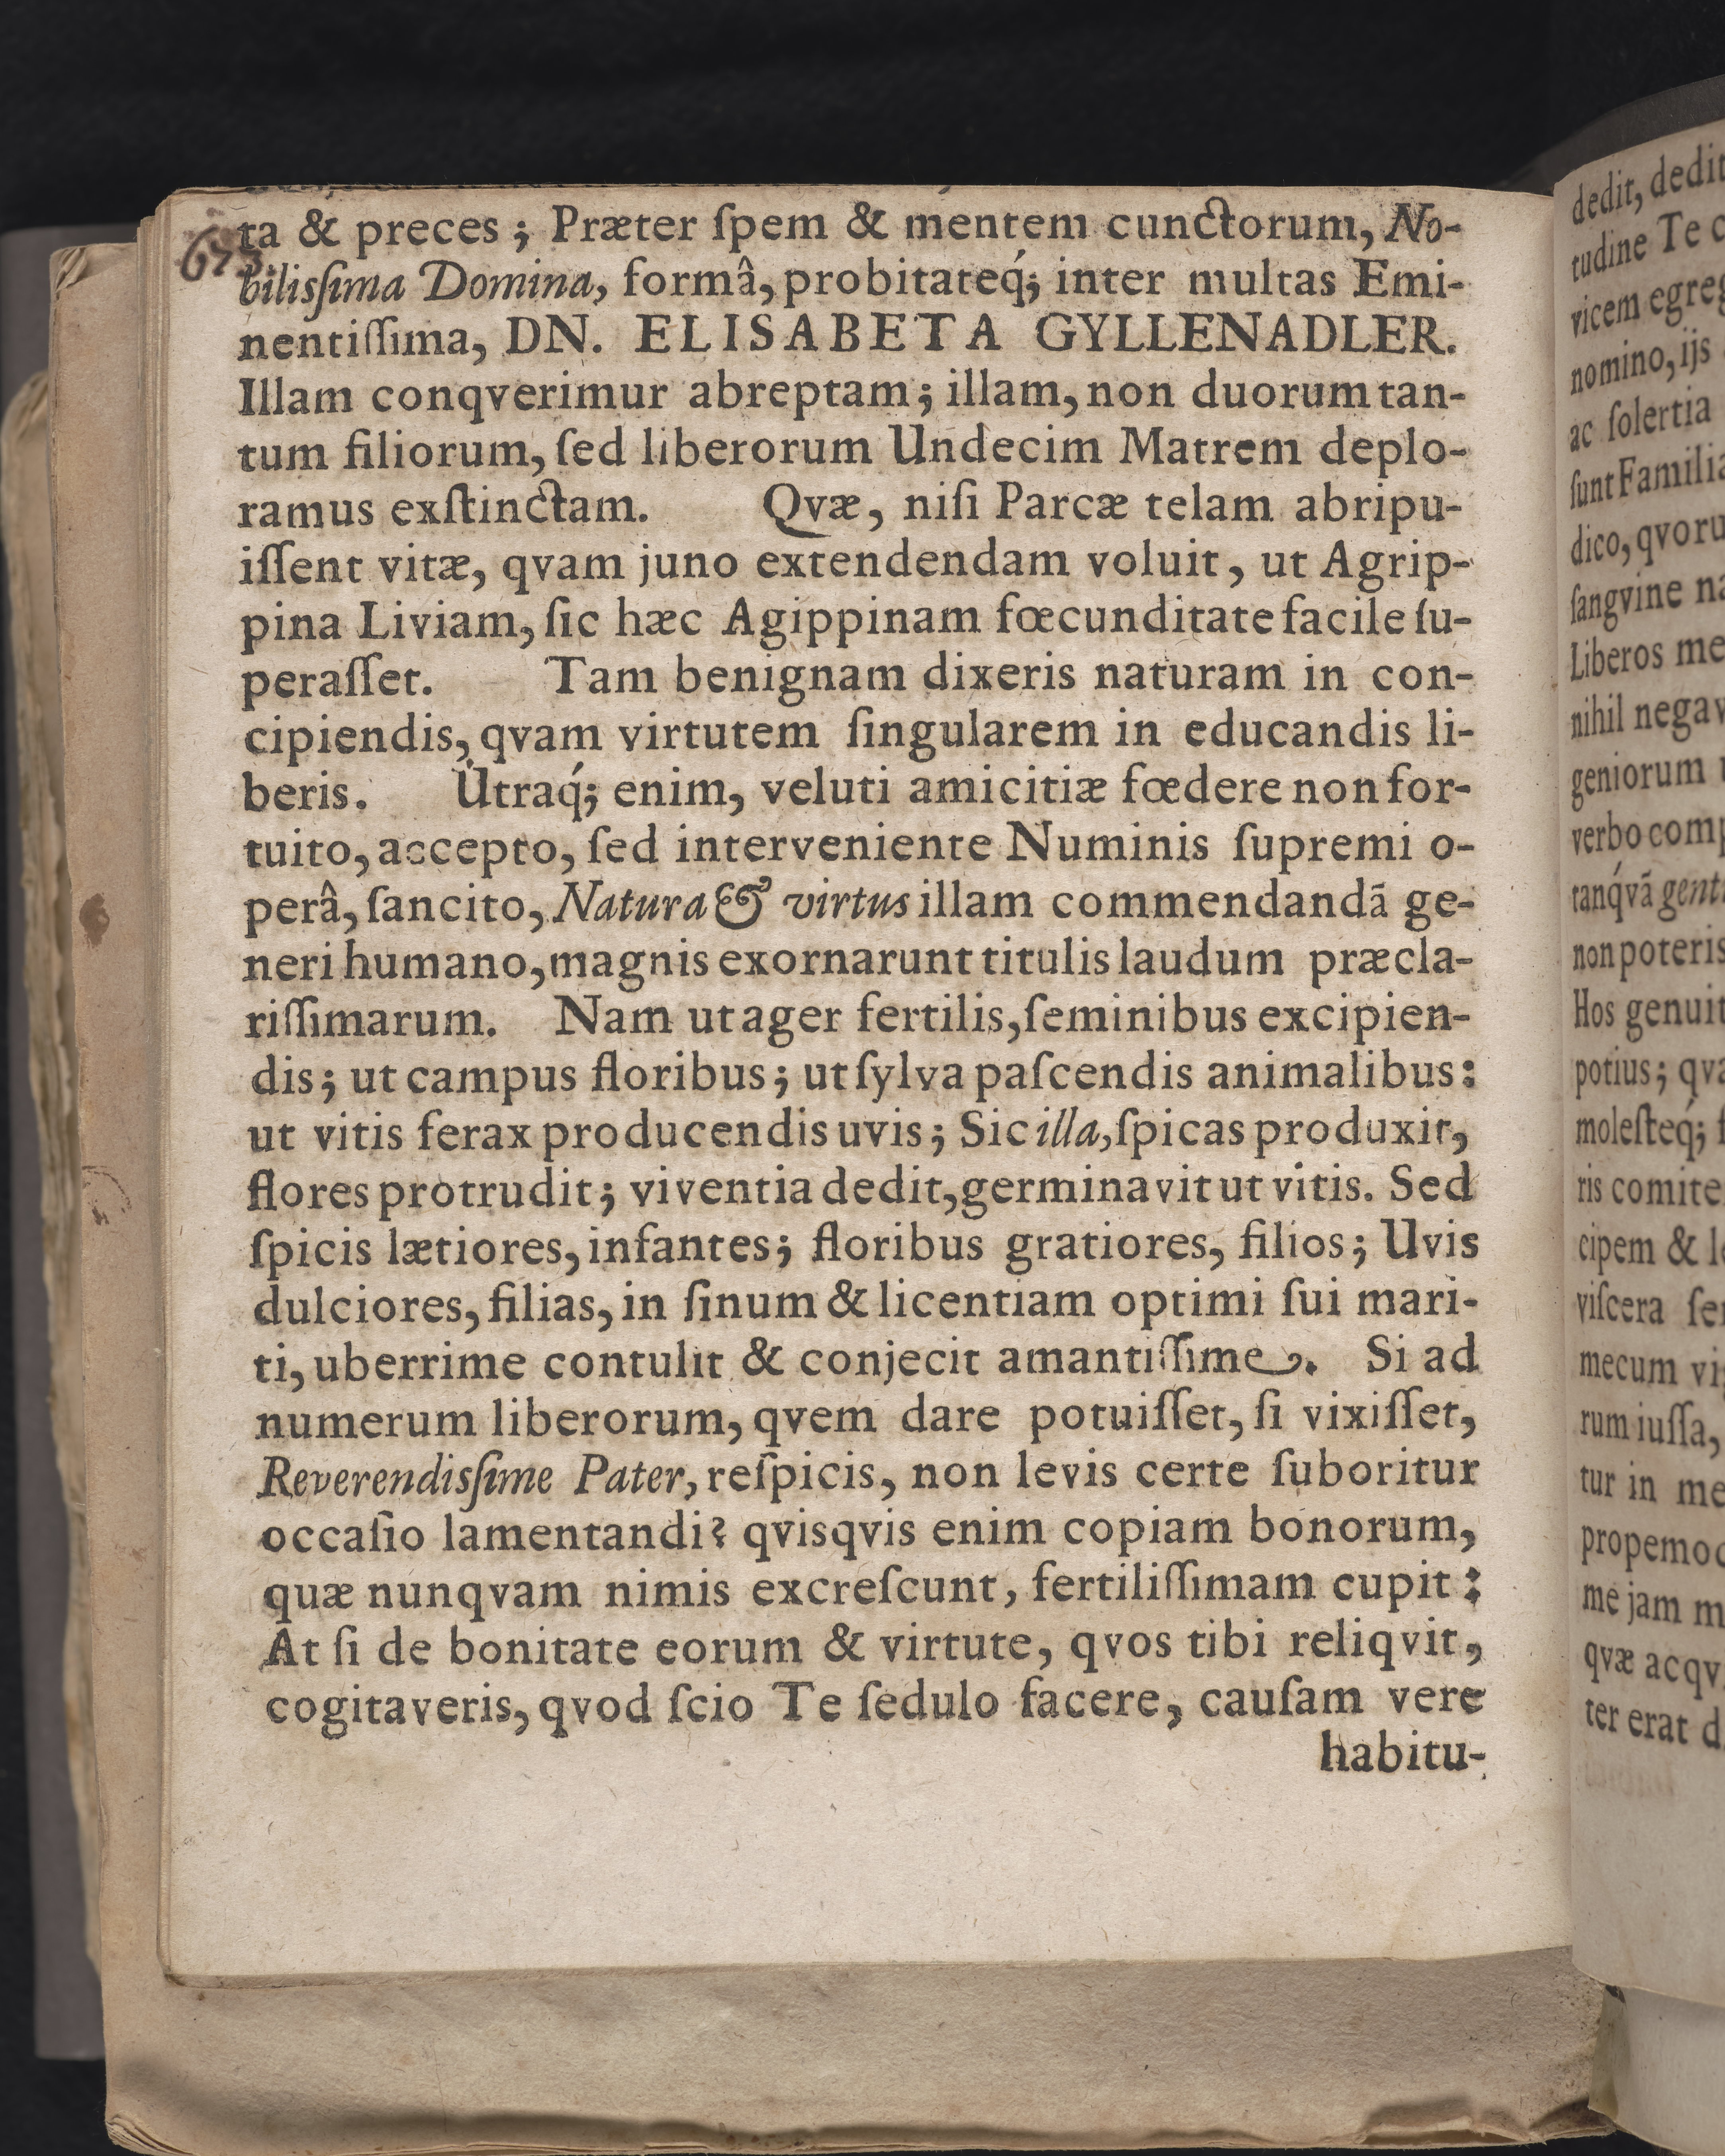 ta & preces ; Præter ſpem & mentem cunctorum, No-
bilisſima Domina, formâ, probitateq́; inter multas Emi-
nentiſſima, DN. ELISABETA GYLLENADLER.
Illam conqverimur abreptam; illam, non duorum tan-
tum filiorum, ſed liberorum Undecim Matrem deplo-
ramus exſtinctam. Qvæ, niſi Parcæ telam abripu-
iſſent vitæ, qvam juno extendendam voluit, ut Agrip-
pina Liviam, ſic hæc Agippinam fœcunditate facile ſu-
peraſſet. Tam benignam dixeris naturam in con-
cipiendis, qvam virtutem ſingularem in educandis li-
beris. Utraq́; enim, veluti amicitiæ fœdere non for-
tuito, accepto, ſed interveniente Numinis ſupremi o-
perâ, ſancito, Natura & virtus illam commendandã ge-
neri humano, magnis exornarunt titulis laudum præcla-
riſſimarum. Nam ut ager fertilis, ſeminibus excipien-
dis; ut campus floribus; ut ſylva paſcendis animalibus:
ut vitis ferax producendis uvis; Sic illa, ſpicas produxit,
flores protrudit; viventia dedit, germinavit ut vitis. Sed
ſpicis lætiores, infantes; floribus gratiores, filios; Uvis
dulciores, filias, in ſinum & licentiam optimi ſui mari-
ti, uberrime contulit & conjecit amantiſſime. Si ad
numerum liberorum, qvem dare potuiſſet, ſi vixiſſet,
Reverendisſime Pater, reſpicis, non levis certe ſuboritur
occaſio lamentandi? qvisqvis enim copiam bonorum,
quæ nunqvam nimis excreſcunt, fertiliſſimam cupit:
At ſi de bonitate eorum & virtute, qvos tibi reliqvit,
cogitaveris, qvod ſcio Te ſedulo facere, cauſam vere
habitu-
dedit, dedit
tudine Te
vicem
nomino, ijs
ac ſolertia
ſunt
dico,
ſangvine
Liberos
nihil
geniorum
verbo
tanq́vã
non poteris
Hos genuit
potius;
moleſteq́;
ris
cipem &
viſcera
mecum
rum iuſſa,
tur in
me jam
qvæ
ter erat